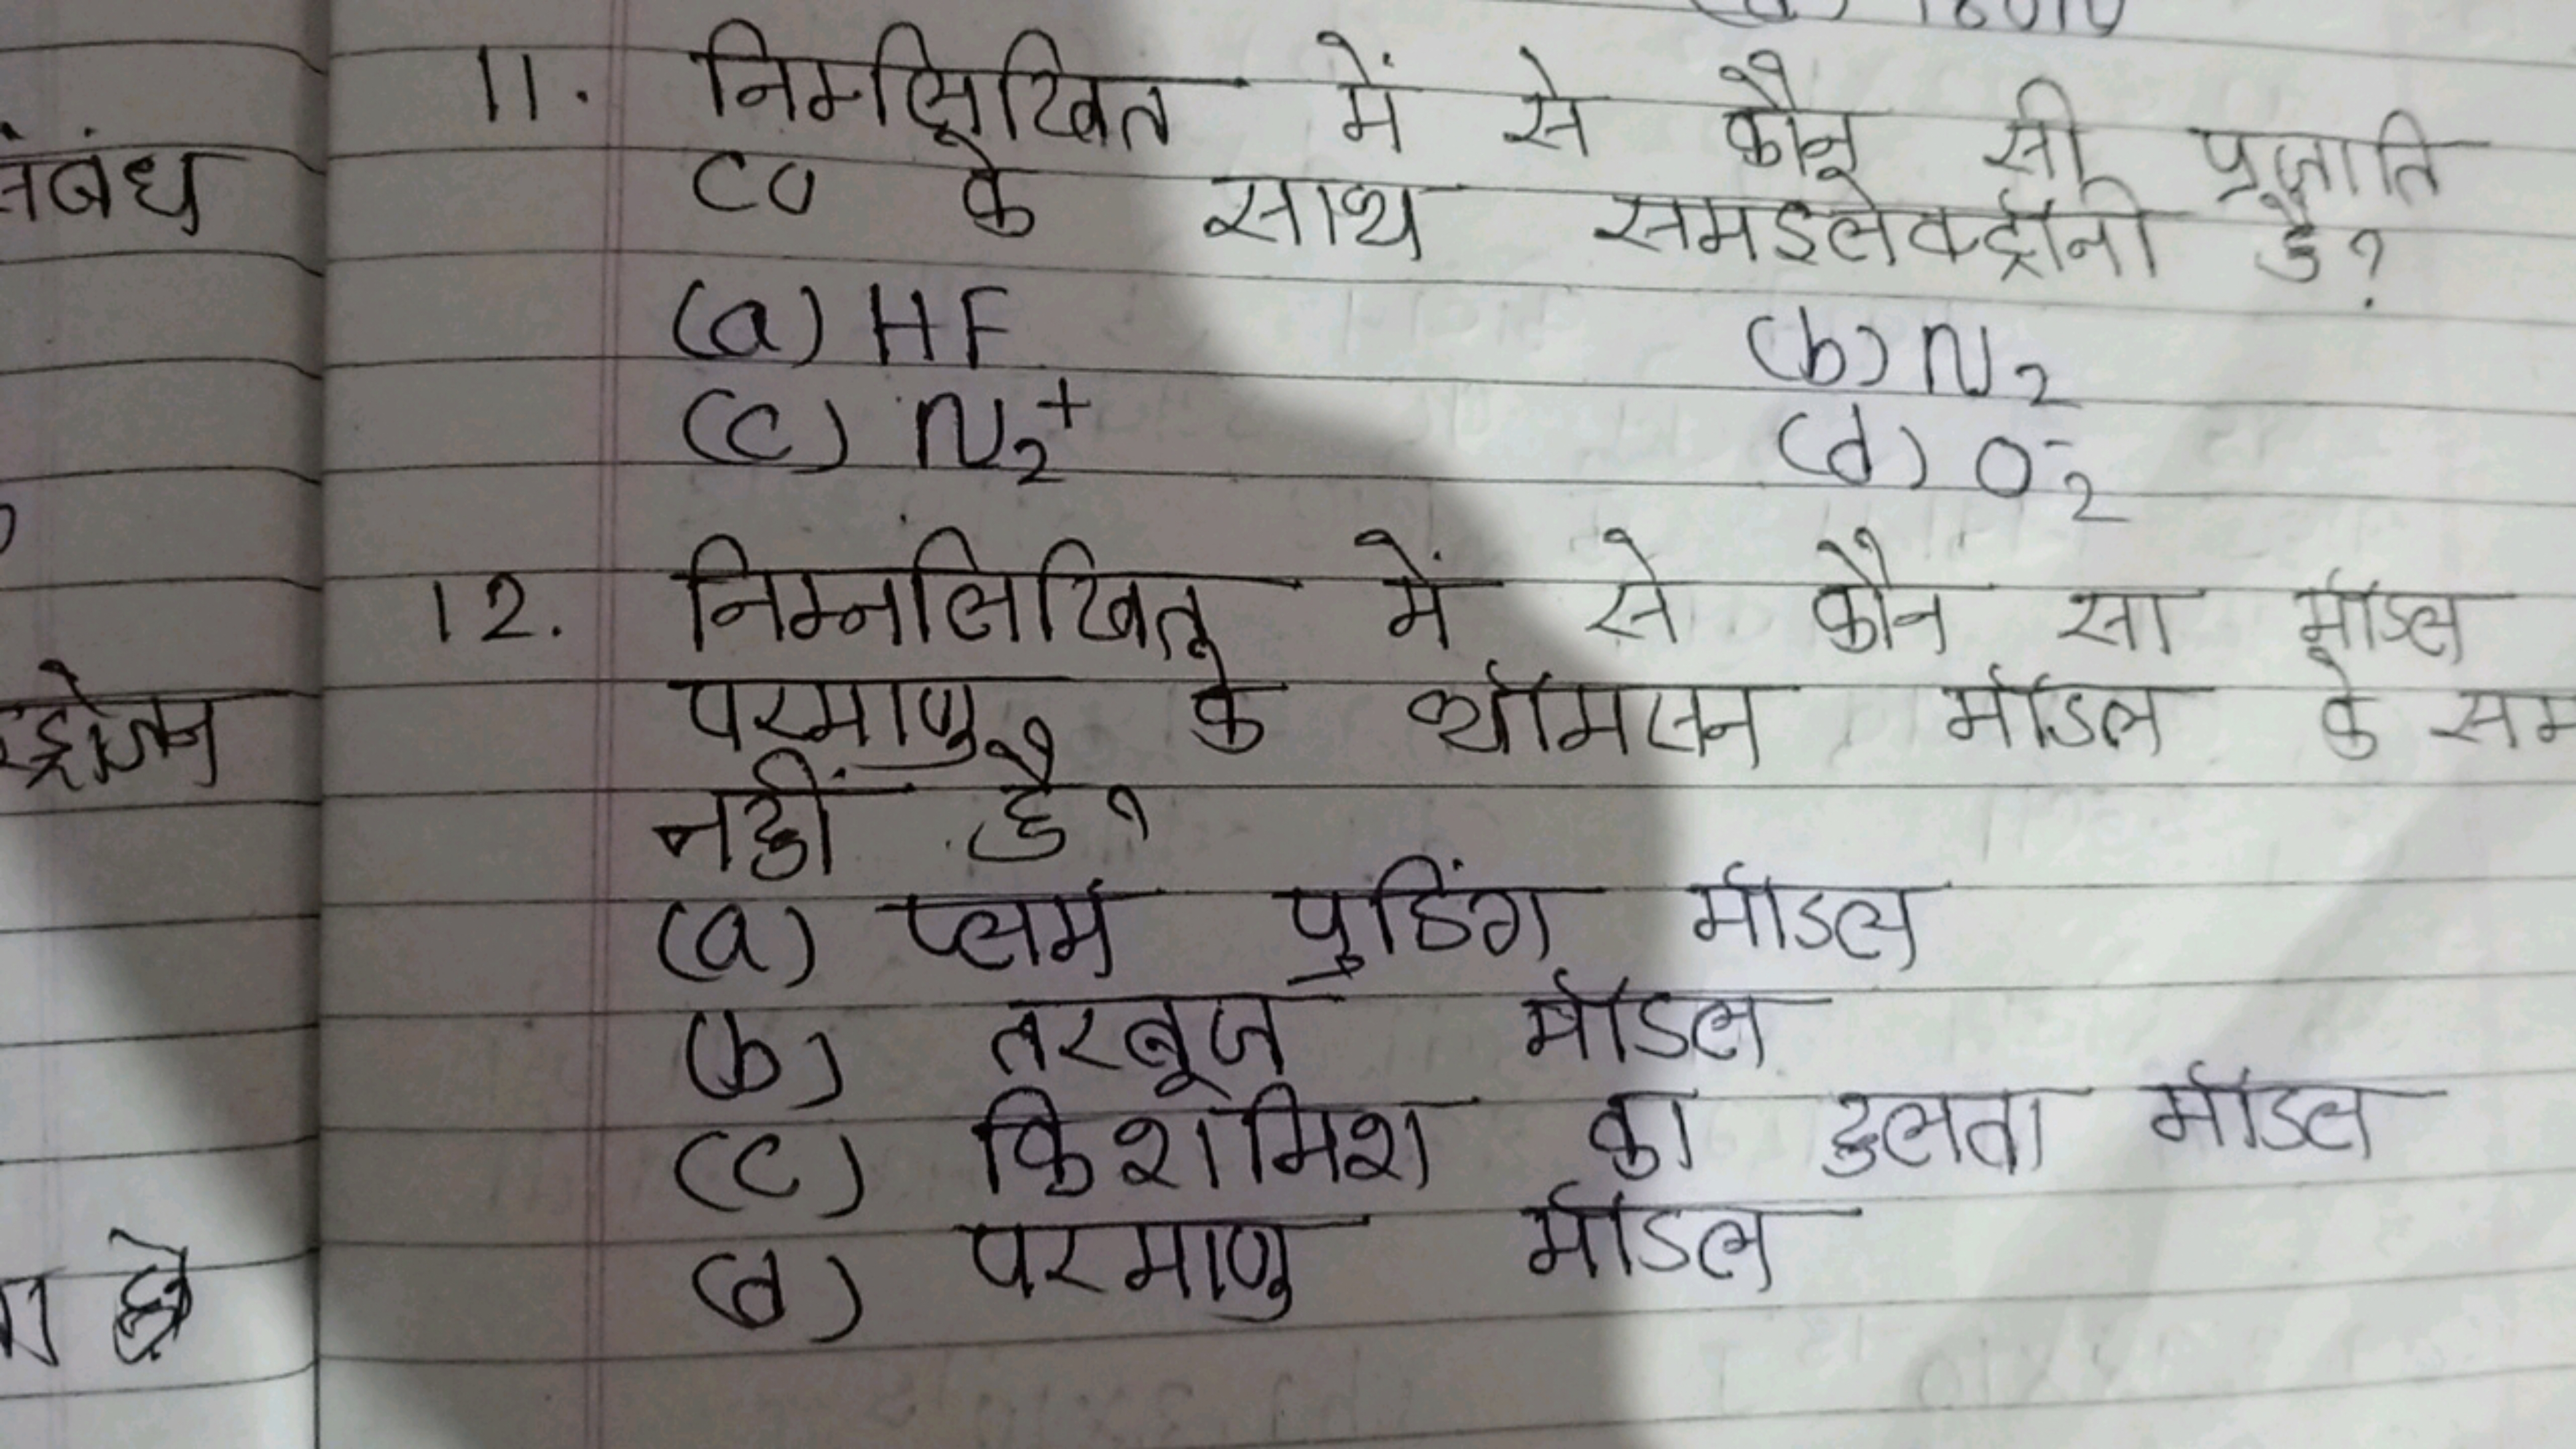 संबंध
11. निम्लिखित में से कौन सी प्रजाति
CO के साथ समइलेक्ट्रॉनी है?
(a) HF (b) N₂
(c) N₂⁺ (d) O₂⁻
12. निम्नलिखित में से कौन सा मॉडल
परमाणु के थॉमसन मॉडल के सम
नहीं है?
(a) प्लम पुडिंग मॉडल
(b) तरबूज मॉडल
(c) किशमिश का हलवा मॉडल
(d) परमाणु मॉडल